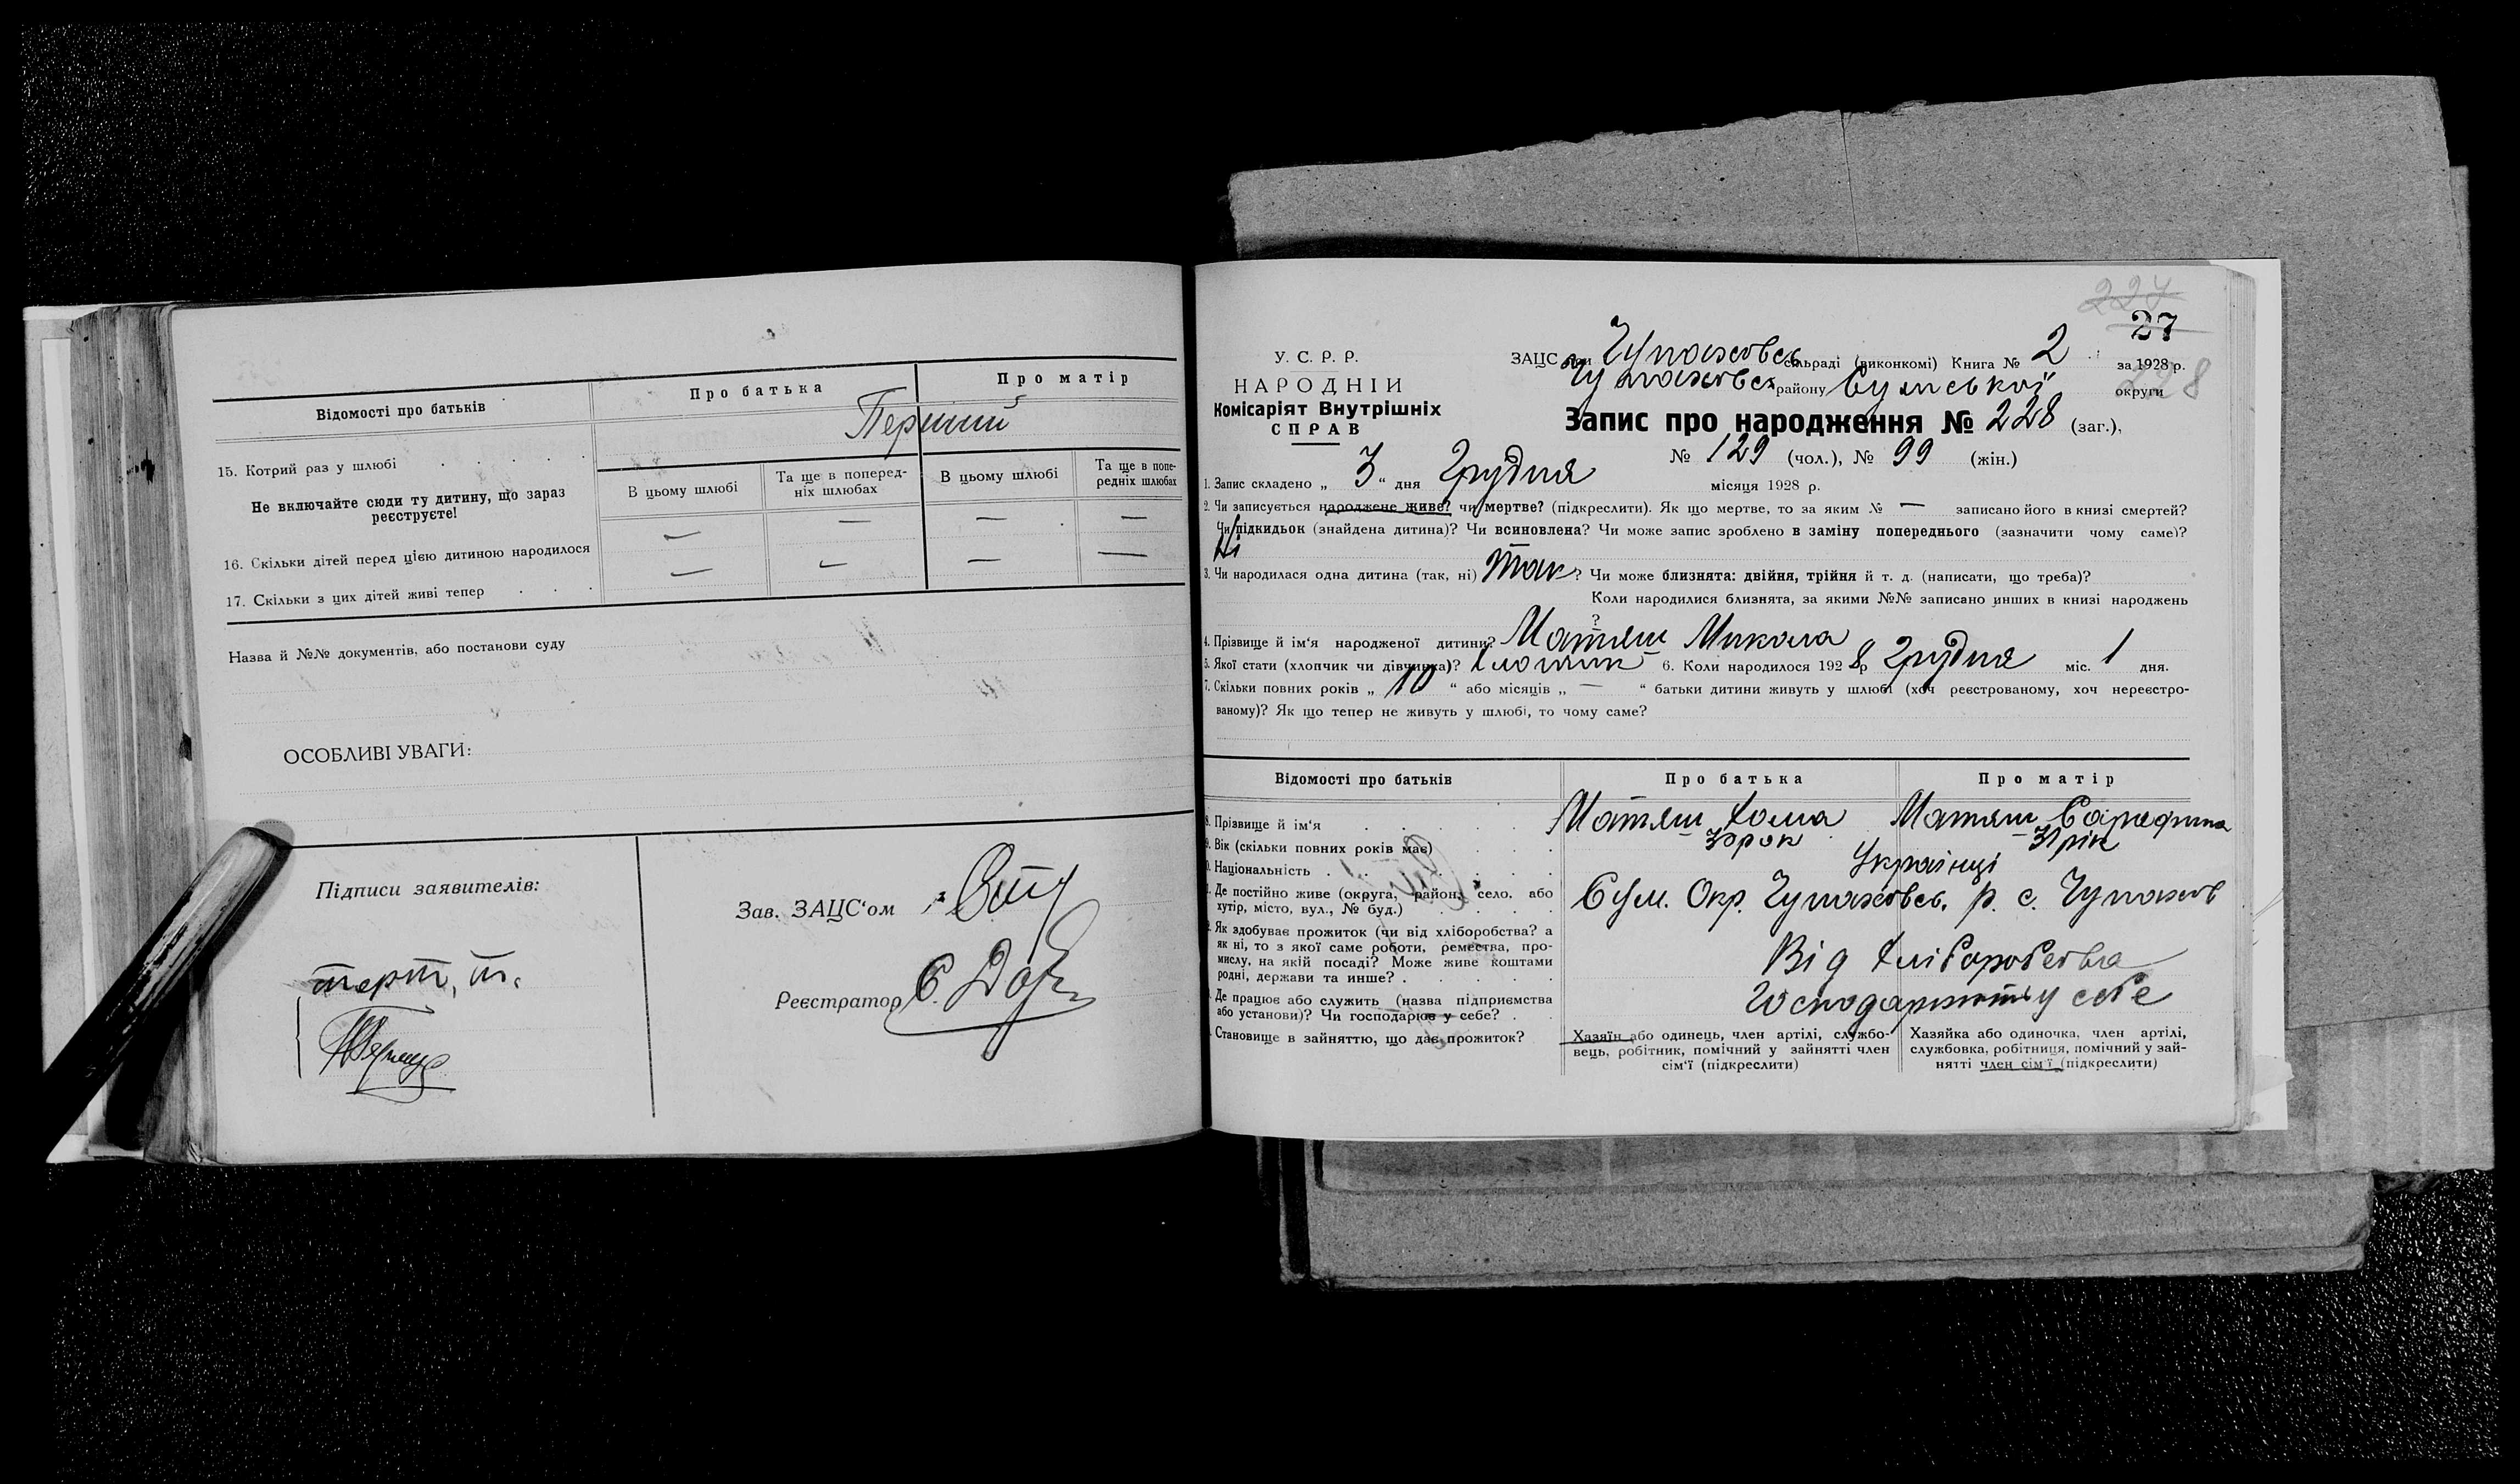 Відомості про батьків
Про батька
Про матір
15. Котрий раз у шлюбі
Перший
Не включайте сюди ту дитину, що зараз
реєструєте!
В цьому шлюбі
Та ще в поперед-
ніх шлюбах
В цьому шлюбі
Та ще в попе-
редніх шлюбах
16. Скільки дітей перед цією дитиною народилося — — — —
17. Скільки з цих дітей живі тепер — — — —
Назва й №№ документів, або постанови суду
ОСОБЛИВІ УВАГИ:
Підписи заявителів:
Зав. ЗАЦС‘ом
Реєстратор
227
27
228
У. С. Р. Р.
НАРОДНІЙ
Комісаріят Внутрішніх
СПРАВ
ЗАЦС при Чупаховсь сільраді (виконкомі) Книга № 2 за 1928 р.
Чупаховськ району Сумської округи
Запис про народження № 228 (заг.),
№ 129 (чол.), № 99 (жін.)
1. Запис складено „ 3 “ дня Грудня місяця 1928 р.
2. Чи записується народжене живе? чи мертве? (підкреслити). Як що мертве, то за яким № — записано його в книзі смертей?
Чи підкидьок (знайдена дитина)? Чи всиновлена? Чи може запис зроблено в заміну попереднього (зазначити чому саме)?
Ні
3. Чи народилася одна дитина (так, ні) Так? Чи може близнята: двійня, трійня й т. д. (написати, що треба)?
Коли народилися близнята, за якими №№ записано инших в книзі народжень
?
4. Прізвище й ім‘я народженої дитини? Матяш Микола
5. Якої стати (хлопчик чи дівчинка)? Хлопчик 6. Коли народилося 1928 р Грудня міс. 1 дня.
7. Скільки повних років „ 10 “ або місяців „ — “ батьки дитини живуть у шлюбі (хоч реєстрованому, хоч нереєстро-
ваному)? Як що тепер не живуть у шлюбі, то чому саме?
Відомості про батьків
Про батька
Про матір
8. Прізвище й ім‘я
Матяш Хома
Матяш Сарафина
9. Вік (скільки повних років має)
31 рік
Національність
Українці
Де постійно живе (округа, район, село, або
хутір, місто, вул., № буд.)
Сум. Окр. Чупаховсь. р. с. Чупахов
Як здобуває прожиток (чи від хліборобства? а
як ні, то з якої саме роботи, ремества, про-
мислу, на якій посаді? Може живе коштами
родні, держави та инше?
Від хліборобства
Де працює або служить (назва підприємства
або установи)? Чи господарює у себе?
Господарють у себе
Становище в зайняттю, що дає прожиток?
Хазяїн або одинець, член артілі, службо-
вець, робітник, помічний у зайнятті член
сім‘ї (підкреслити)
Хазяйка або одиночка, член артілі,
службовка, робітниця, помічний у зай-
нятті член сім‘ї (підкреслити)